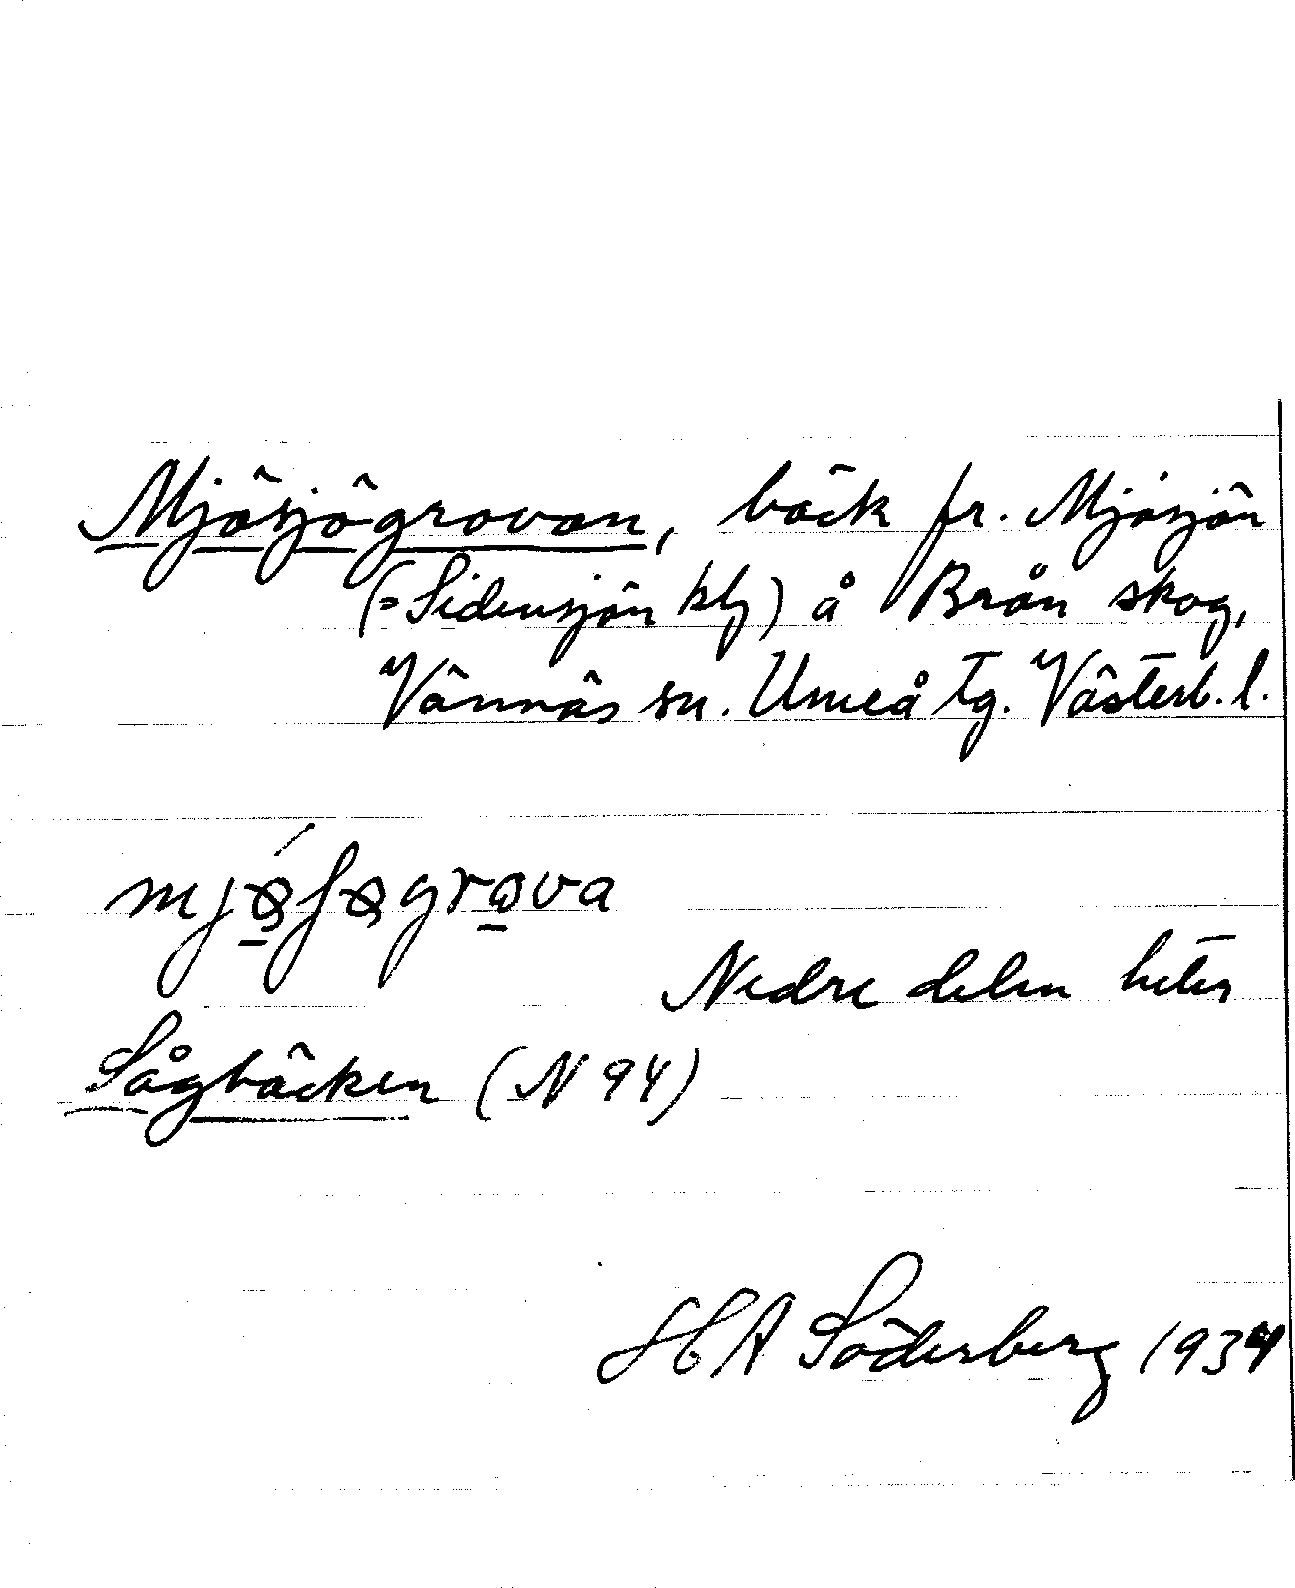 Mjösjögrovan, bäck fr. Mjösjön
(= Sidensjön kbl) å Brån skog,
Vännäs sn. Umeå tg. Västerb. l.
mjøʃøgrova
Nedre delen heter
Sågbäcken (N 94)
H A Söderberg 1934